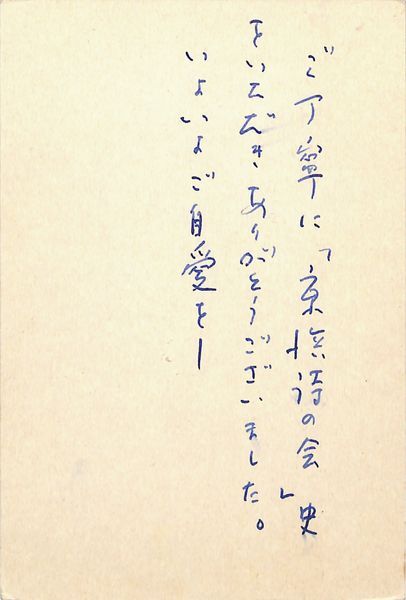 ご丁寧に「京浜詩の会」史
をいただきありがとうございました。
いよいよご自愛を―